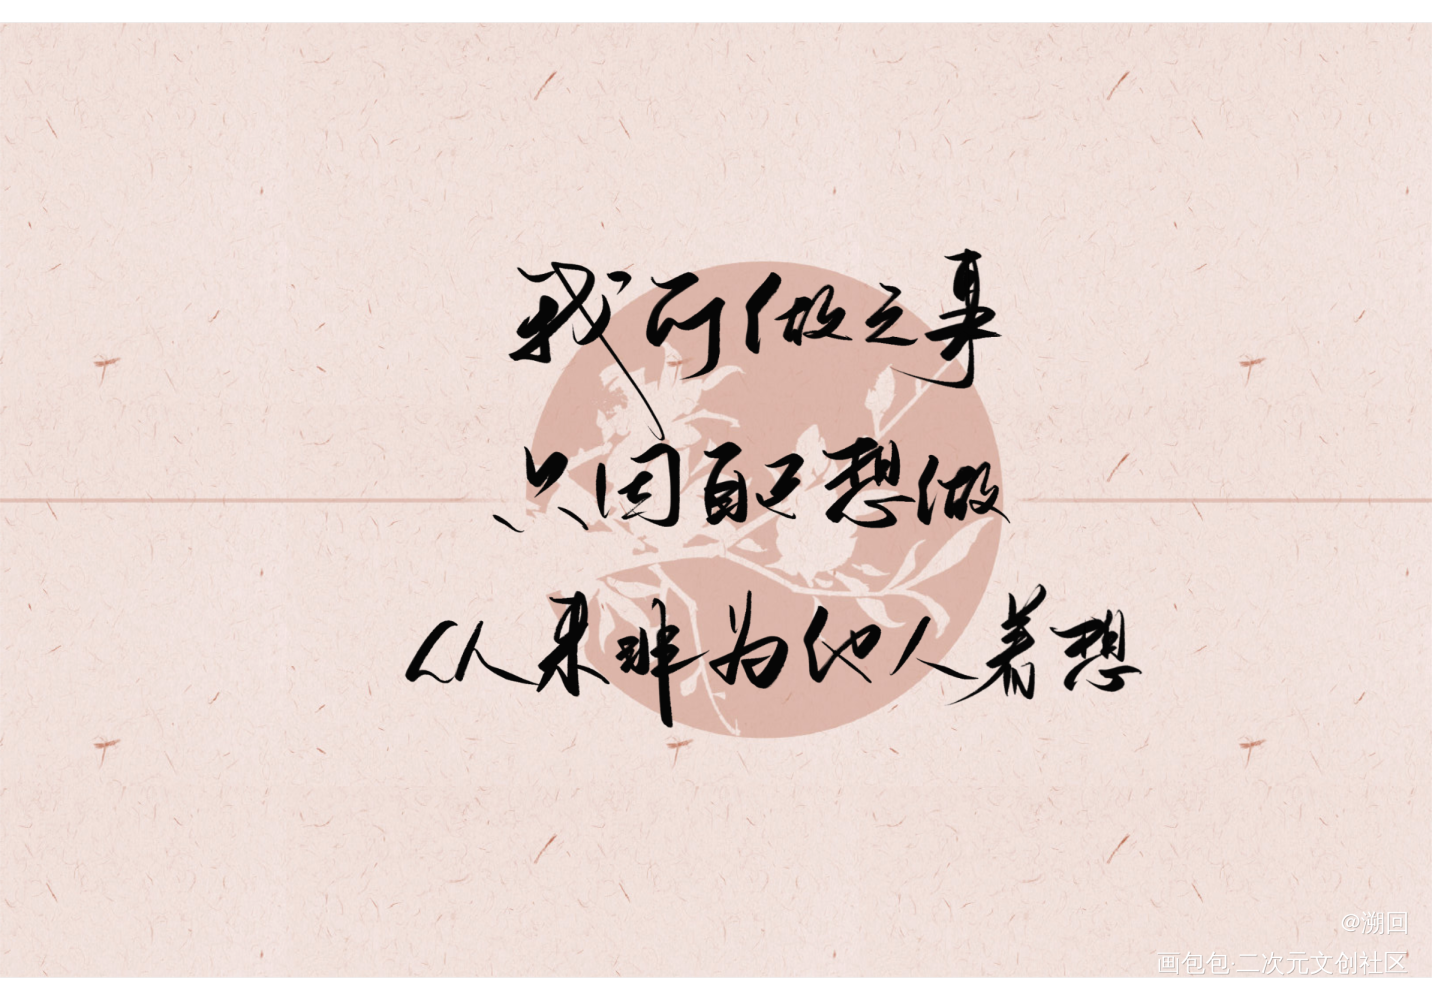 我所做之事
只因自己想做
从来非为他人着想
@溯回
画包包·二次元文创社区